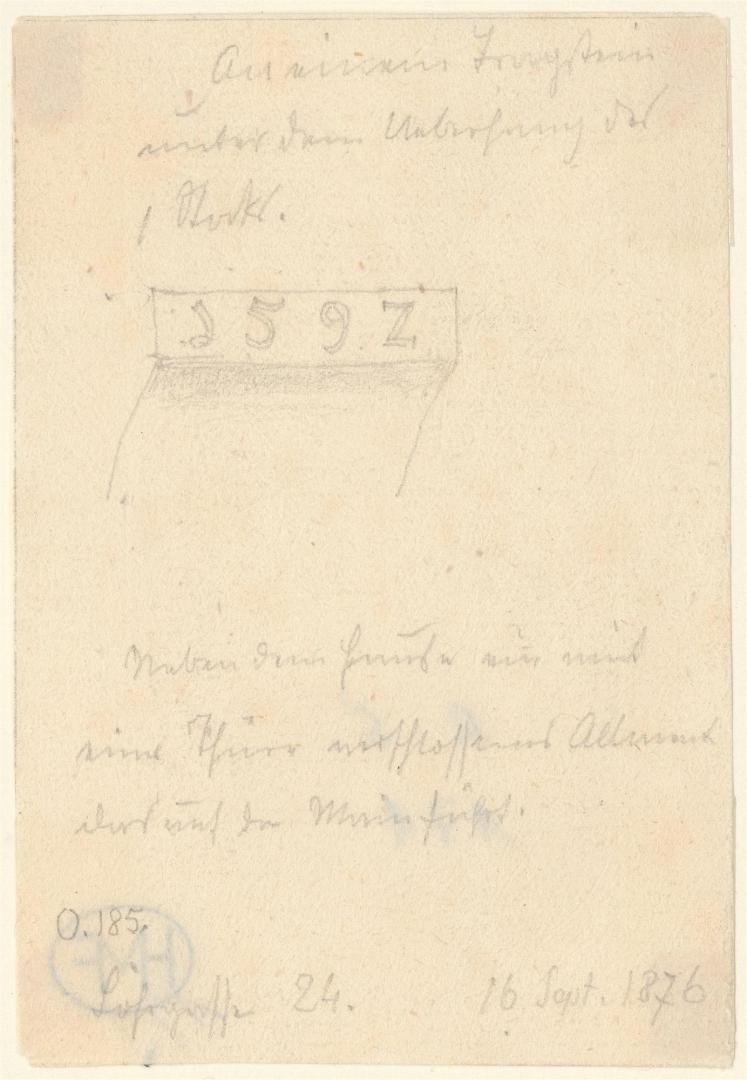 An einem Tragstein
unter dem Ueberhang des
1 Stocks.
1592
Neben dem Hause ein mit
einer Thüre verschlossenes Allment
das auf den Main führt.
O.185.
HMF
Löhrgasse 24. 16 Sept. 1876